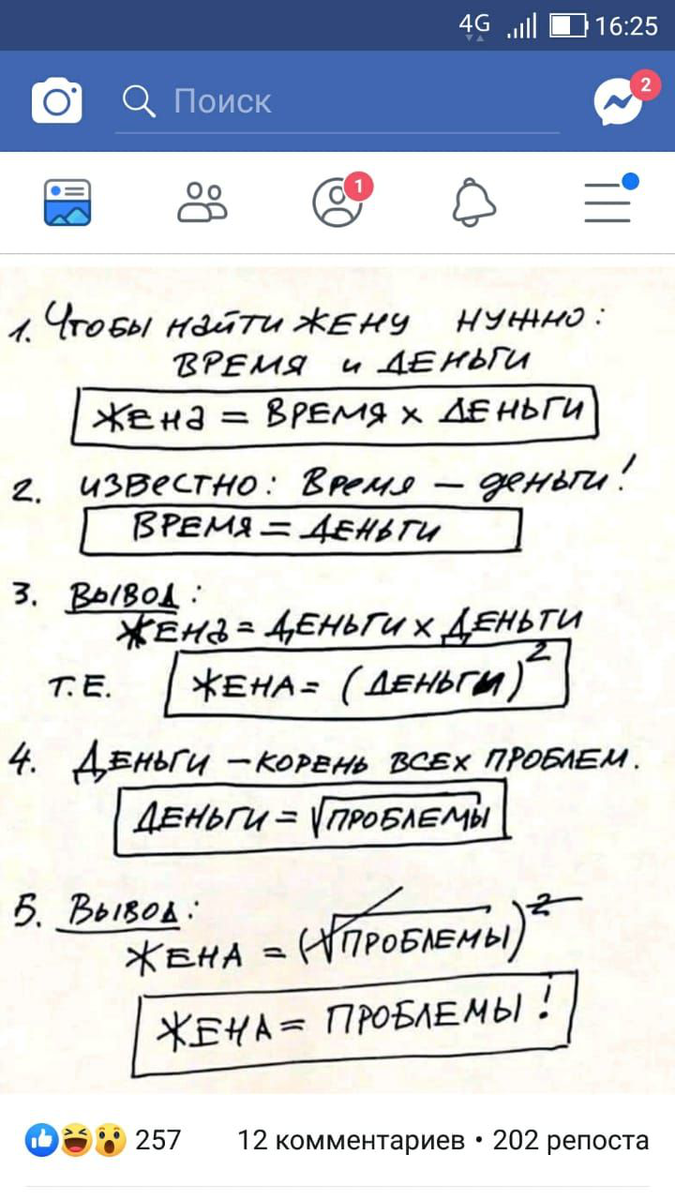 4G 16:25
Поиск 2
1
1. Чтобы найти жену нужно:
время и деньги
Жена = время x деньги
2. известно: Время – деньги!
Время = деньги
3. Вывод:
Жена = деньги x деньги
т.е. Жена = (деньги)²
4. Деньги – корень всех проблем.
Деньги = √проблемы
5. Вывод:
Жена = (√проблемы)²
Жена = проблемы!
257 12 комментариев • 202 репоста